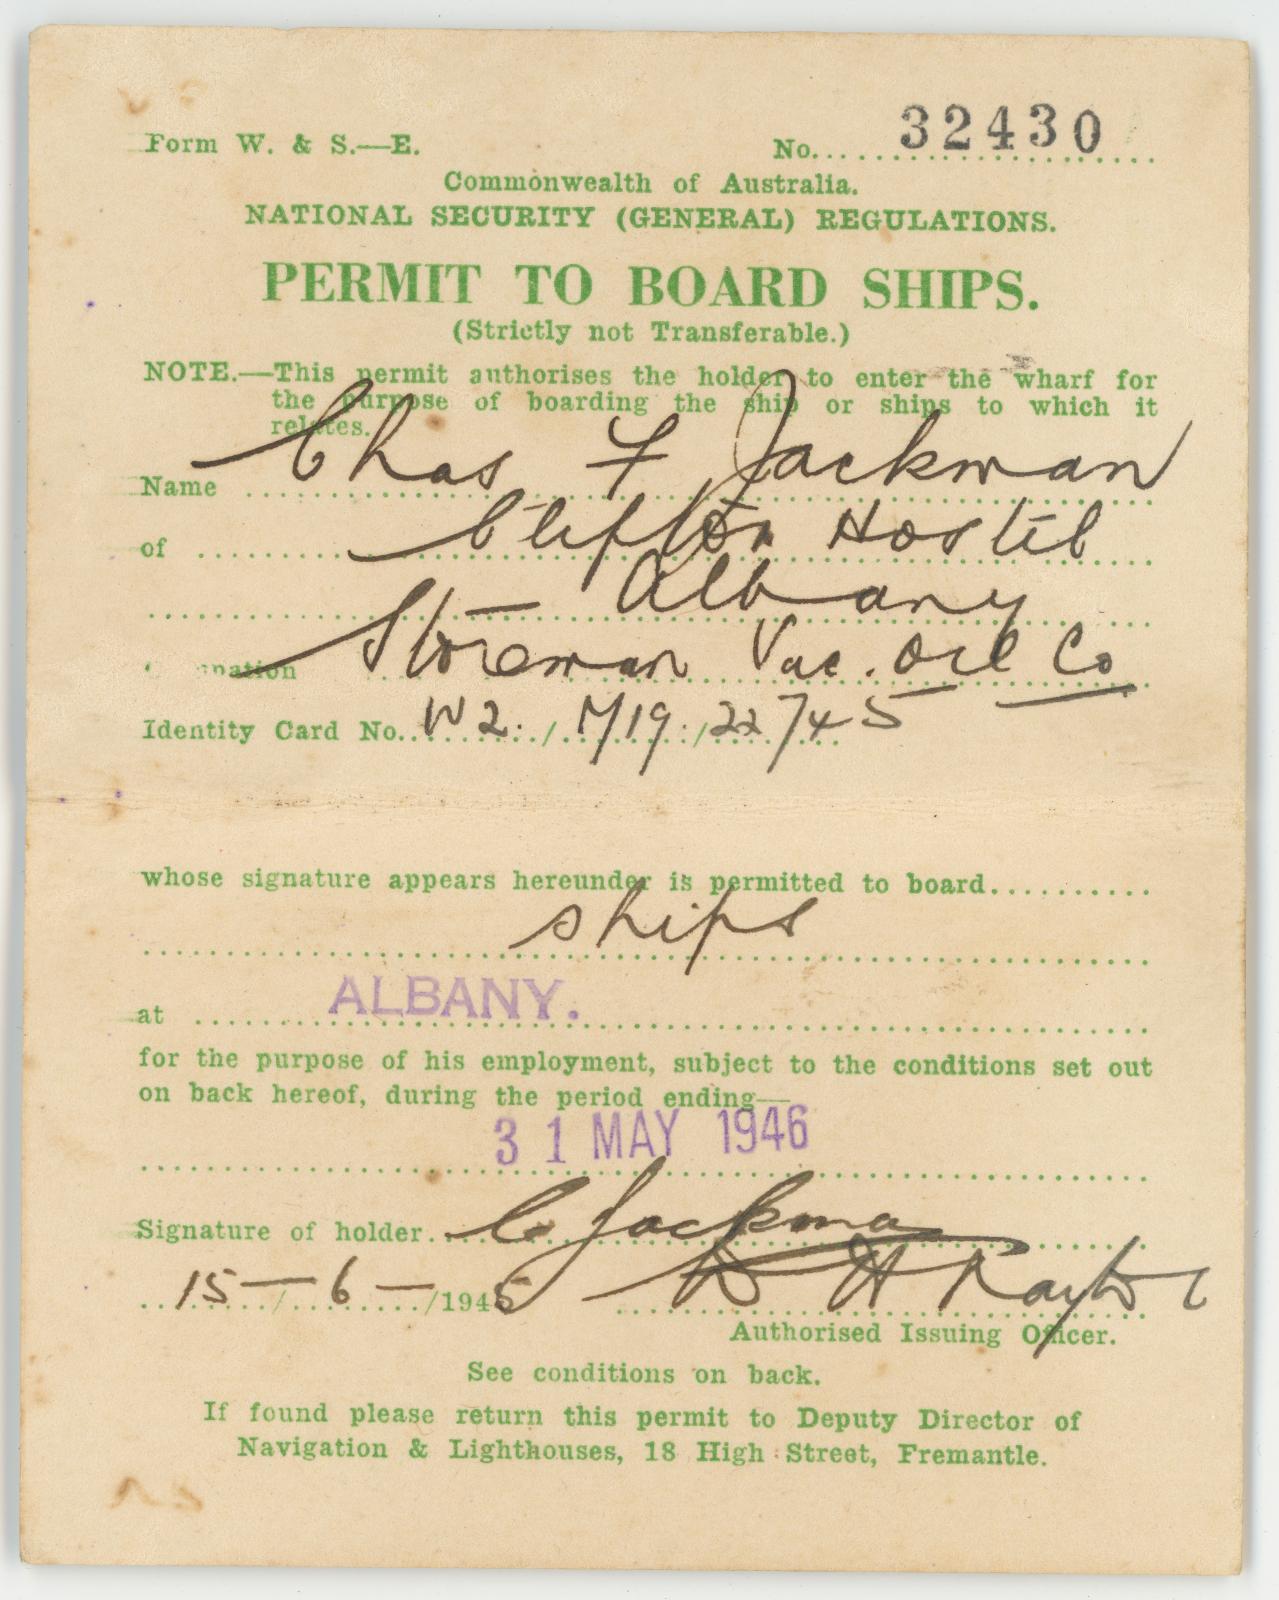 Form W. & S.—E.
No. 32430
Commonwealth of Australia.
NATIONAL SECURITY (GENERAL) REGULATIONS.
PERMIT TO BOARD SHIPS.
(Strictly not Transferable.)
NOTE.—This permit authorises the holder to enter the wharf for
the purpose of boarding the ship or ships to which it
relates.
Name Chas F Jackman
of Clifton Hostel
Albany
Occupation Storeman Vac. Oil Co
Identity Card No. W2. / M19 / 22745
whose signature appears hereunder is permitted to board
ships
at ALBANY.
for the purpose of his employment, subject to the conditions set out
on back hereof, during the period ending—
31 MAY 1946
Signature of holder. C Jackman
15 — 6 — /1945 H
Authorised Issuing Officer.
See conditions on back.
If found please return this permit to Deputy Director of
Navigation & Lighthouses, 18 High Street, Fremantle.